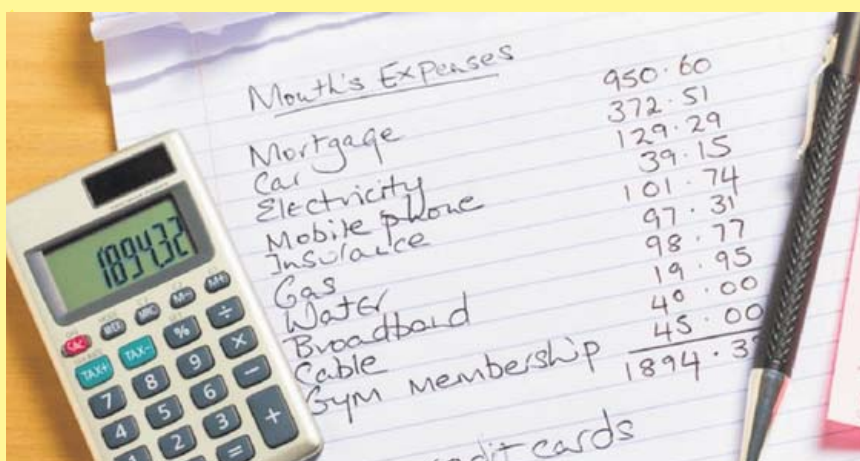 Month's Expenses
Mortgage 950.60
Car 372.51
Electricity 129.29
Mobile phone 39.15
Insurance 101.74
Gas 97.31
Water 98.77
Broadband 19.95
Cable 40.00
Gym membership 45.00
1894.3
cards
1894.32
MRC M- M+
CAC ÷
TAX+ TAX- % ×
7 8 9 −
4 5 6 +
1 2 3 =